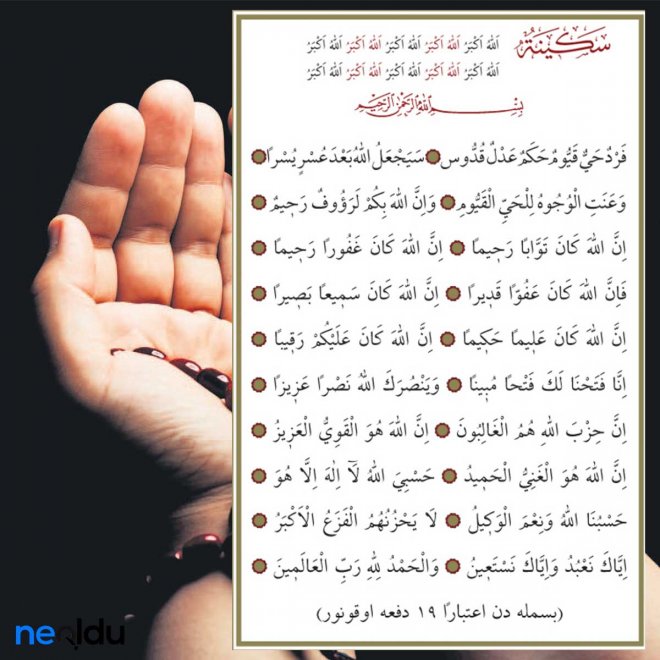 سَكِينَةٌ
اَللهُ اَكْبَرُ اَللهُ اَكْبَرُ اَللهُ اَكْبَرُ اَللهُ اَكْبَرُ اَللهُ اَكْبَرُ
اَللهُ اَكْبَرُ اَللهُ اَكْبَرُ اَللهُ اَكْبَرُ اَللهُ اَكْبَرُ اَللهُ اَكْبَرُ
بِسْمِ اللهِ الرَّحْمٰنِ الرَّحِيمِ
فَرْدٌ حَيٌّ قَيُّومٌ حَكَمٌ عَدْلٌ قُدُّوس سَيَجْعَلُ اللهُ بَعْدَ عُسْرٍ يُسْرًا
وَعَنَتِ الْوُجُوهُ لِلْحَيِّ الْقَيُّومِ وَاِنَّ اللهَ بِكُمْ لَرَؤُوفٌ رَحِيمٌ
اِنَّ اللهَ كَانَ تَوَّابًا رَحِيمًا اِنَّ اللهَ كَانَ غَفُورًا رَحِيمًا
فَاِنَّ اللهَ كَانَ عَفُوًّا قَدِيرًا اِنَّ اللهَ كَانَ سَمِيعًا بَصِيرًا
اِنَّ اللهَ كَانَ عَلِيمًا حَكِيمًا اِنَّ اللهَ كَانَ عَلَيْكُمْ رَقِيبًا
اِنَّا فَتَحْنَا لَكَ فَتْحًا مُبِينًا وَيَنْصُرَكَ اللهُ نَصْرًا عَزِيزًا
اِنَّ حِزْبَ اللهِ هُمُ الْغَالِبُونَ اِنَّ اللهَ هُوَ الْقَوِيُّ الْعَزِيزُ
اِنَّ اللهَ هُوَ الْغَنِيُّ الْحَمِيدُ حَسْبِيَ اللهُ لَٓا اِلٰهَ اِلَّا هُوَ
حَسْبُنَا اللهُ وَنِعْمَ الْوَكِيلُ لَا يَحْزُنُهُمُ الْفَزَعُ الْاَكْبَرُ
اِيَّاكَ نَعْبُدُ وَاِيَّاكَ نَسْتَعِينُ وَالْحَمْدُ لِلهِ رَبِّ الْعَالَمِينَ
(بسمله دن اعتبارًا ١٩ دفعه اوقونور)
neoldu